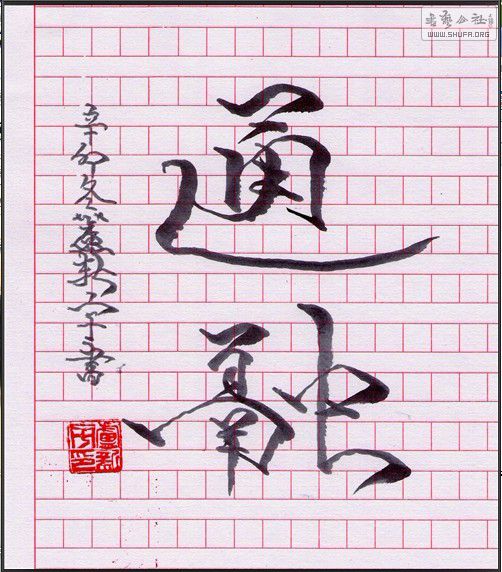 书艺公社
WWW.SHUFA.ORG
通融
辛卯冬書